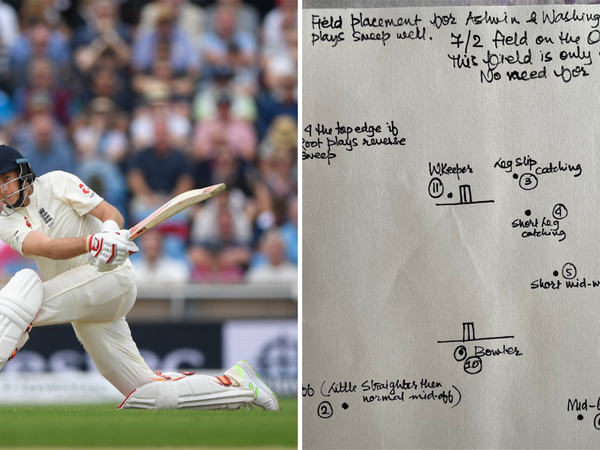 Field placement for Ashwin & Washing
plays sweep well. 7/2 field on the O
This field is only
No need for
the top edge if
Root plays reverse
sweep
WKeeper
11
Leg slip
catching
3
4
Short Leg
catching
5
Short mid-w
Bowler
10
(Little straighter then
normal mid-off)
2
Mid-